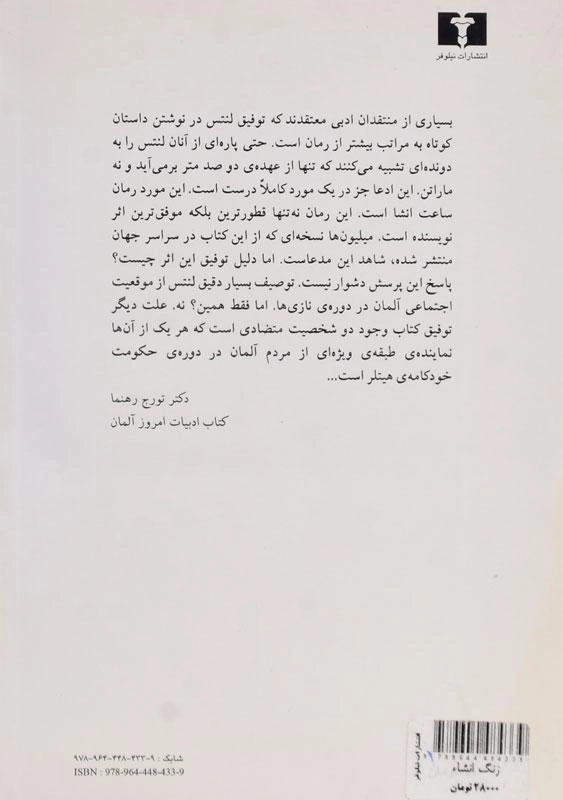 انتشارات نیلوفر
بسیاری از منتقدان ادبی معتقدند که توفیق لنتس در نوشتن داستان
کوتاه به مراتب بیشتر از رمان است. حتی پاره‌ای از آنان لنتس را به
دونده‌ای تشبیه می‌کنند که تنها از عهده‌ی دو صد متر برمی‌آید و نه
ماراتن. این ادعا جز در یک مورد کاملاً درست است. این مورد رمان
ساعت انشا است. این رمان نه‌تنها قطورترین بلکه موفق‌ترین اثر
نویسنده است. میلیون‌ها نسخه‌ای که از این کتاب در سراسر جهان
منتشر شده، شاهد این مدعاست. اما دلیل توفیق این اثر چیست؟
پاسخ این پرسش دشوار نیست. توصیف بسیار دقیق لنتس از موقعیت
اجتماعی آلمان در دوره‌ی نازی‌ها. اما فقط همین؟ نه. علت دیگر
توفیق کتاب وجود دو شخصیت متضادی است که هر یک از آن‌ها
نماینده‌ی طبقه‌ی ویژه‌ای از مردم آلمان در دوره‌ی حکومت
خودکامه‌ی هیتلر است...
دکتر تورج رهنما
کتاب ادبیات امروز آلمان
شابک : ۹-۴۳۳-۴۴۸-۹۶۴-۹۷۸
ISBN : 978-964-448-433-9
انتشارات نیلوفر
زنگ انشاء
۲۸۰۰۰ تومان